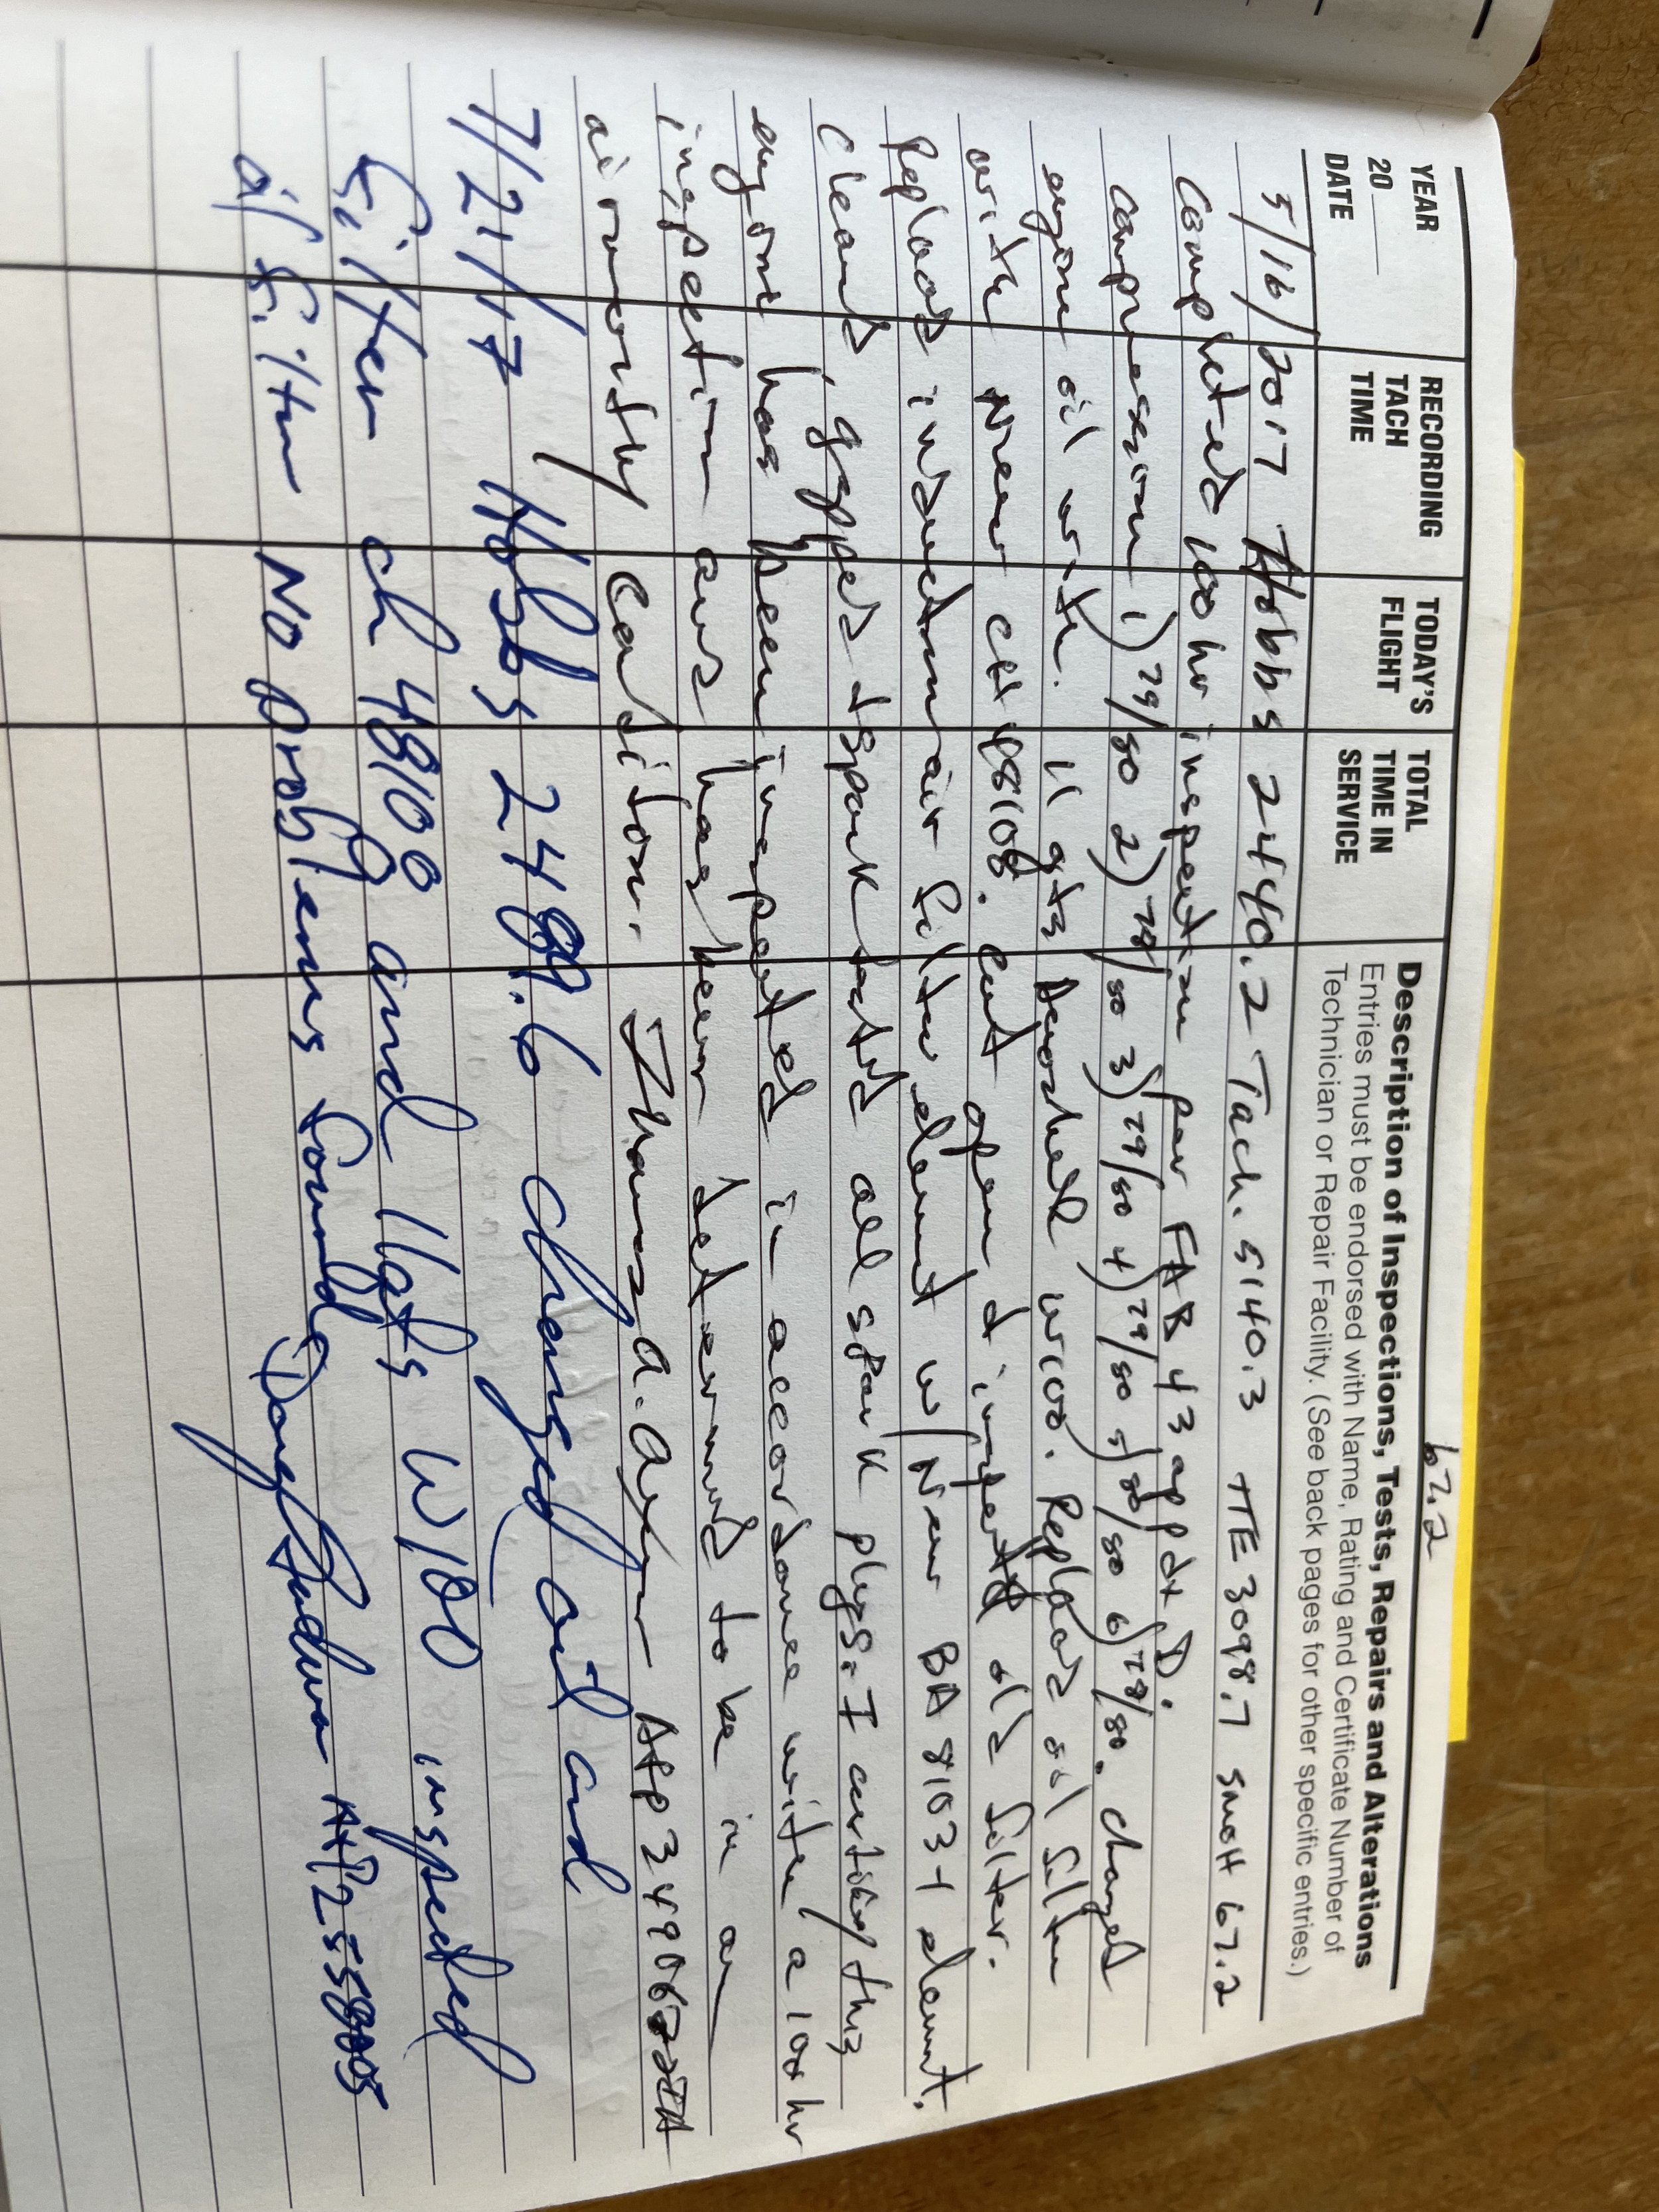 67.2
YEAR
20
DATE
RECORDING
TACH
TIME
TODAY'S
FLIGHT
TOTAL
TIME IN
SERVICE
Description of Inspections, Tests, Repairs and Alterations
Entries must be endorsed with Name, Rating and Certificate Number of
Technician or Repair Facility. (See back pages for other specific entries.)
5/16/2017 Hobbs 2440.2 Tach. 5140.3 TTE 3098.7 SMOH 67.2
Completed 100 hr inspection per FAR 43 app dx D.
Compression 1) 79/80 2) 78/80 3) 79/80 4) 79/80 5) 80/80 6) 78/80. Changed
engine oil with 11 qts Aeroshell W100. Replaced oil filter
with New CH 48108. Cut open & inspected old filter.
Replaced induction air filter element w/ New BA 8103-1 element.
Cleaned, gapped & spark tested all spark plugs. I certify this
engine has been inspected in accordance with a 100 hr
inspection and has been determined to be in an
airworthy condition. Thomas A. A&P
7/21/17 Hobbs 2489.6 Changed oil and
filter ch 48108 and 11qts W100 inspected
oil filter No Problems found Doug A+P